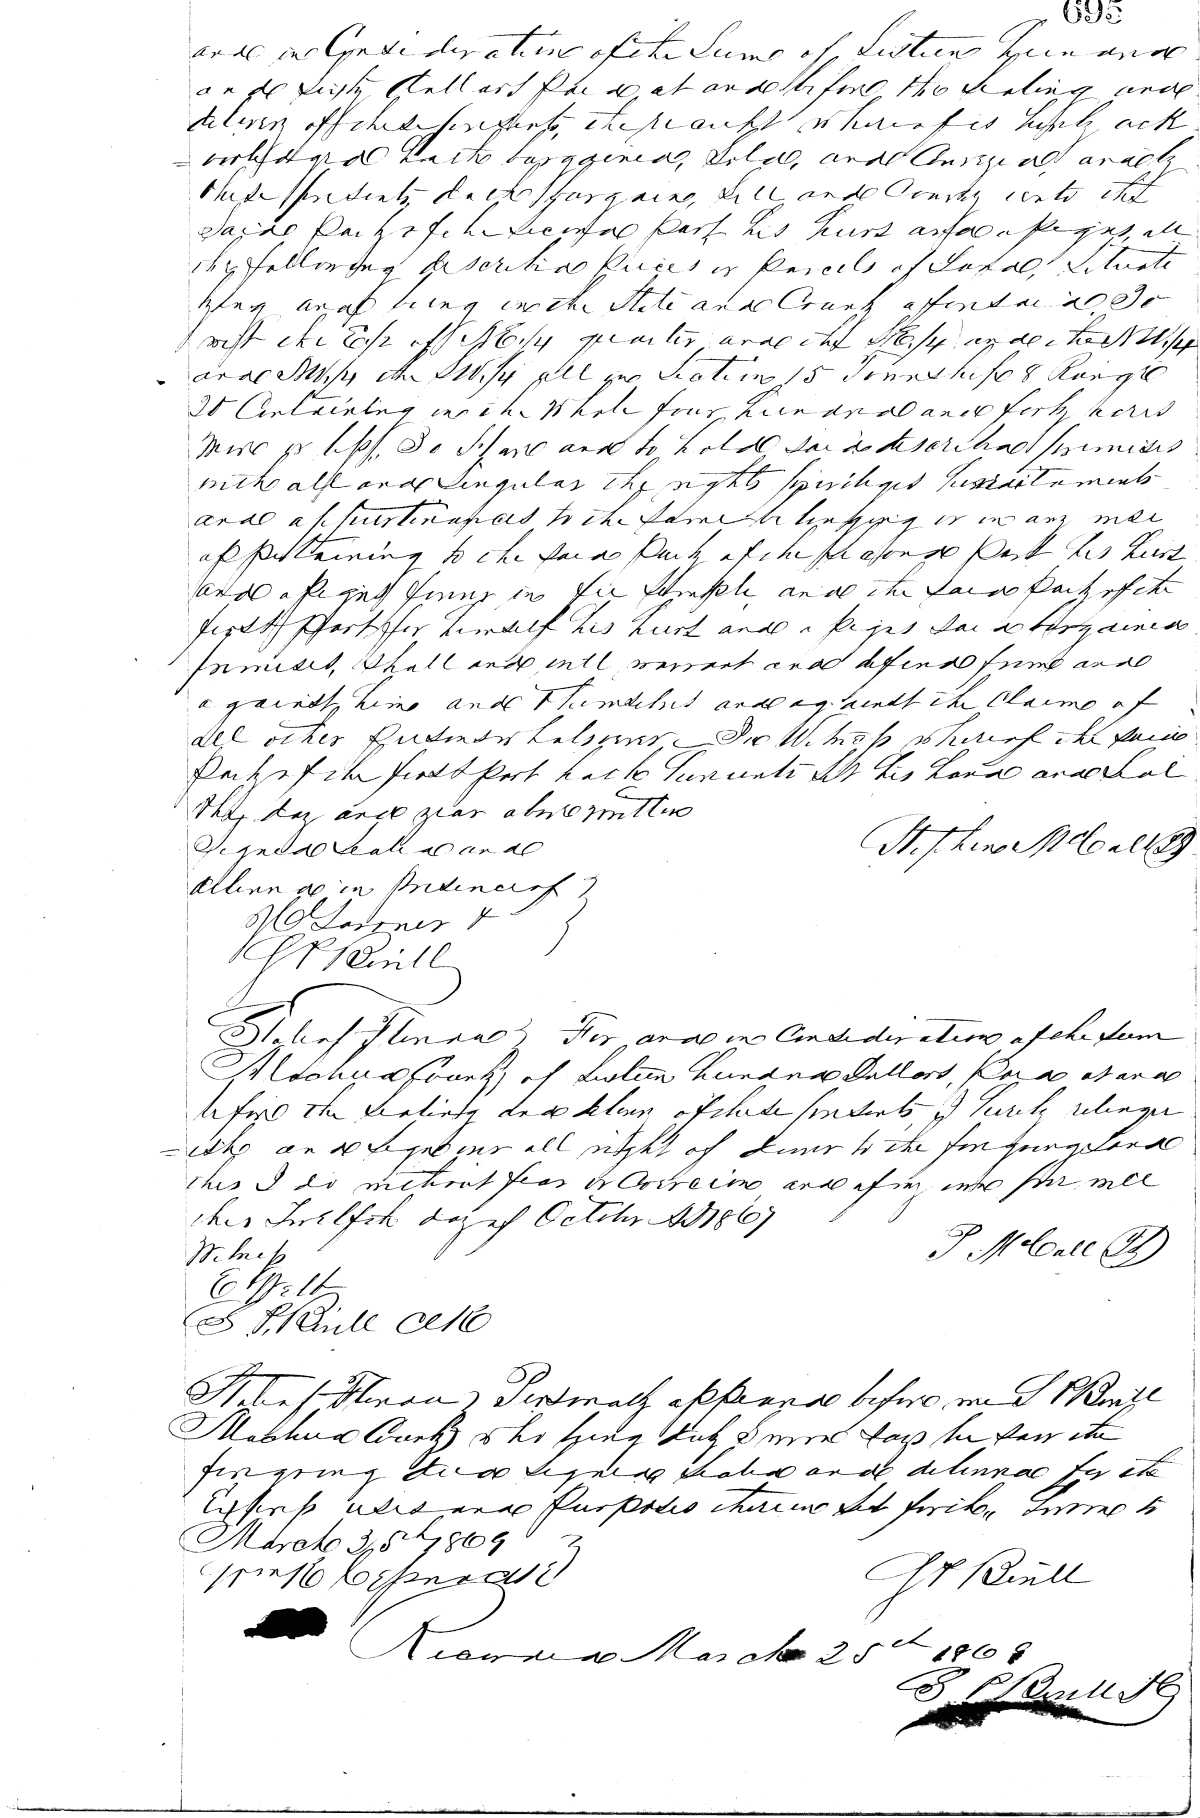 695
and in Consideration of the Sum of Sixteen Hundred
and sixty Dollars Paid at and before the sealing and
delivery of these presents, the receipt whereof is hereby ack
=nowledged hath bargained, Sold, and Conveyed and by
these presents doth bargain, Sell and Convey unto the
Said Party of the second Part his heirs and assigns, all
the following described Pieces or Parcels of Land, Situate
lying and being in the State and County aforesaid, To
wit the E/2 of NE/4 quarter and the SE/4 and the NW/4
and SW/4 the SW/4 all in Section 15 Township 8 Range
20 Containing in the Whole four hundred and forty acres
More or less, To Have and to hold said described premises
with all and Singular the rights privileges hereditaments
and appurtenances to the same belonging or in any wise
appertaining to the said Party of the second Part his heirs
and assigns forever in fee Simple, and the said Party of the
first Part for himself his heirs and assigns said bargained
premises, Shall and will warrant and defend from and
against him and themselves and against the Claims of
all other Persons whatsoever. In Witness whereof the said
Party of the first Part hath hereunto Set his hand and Seal
the day and year above written
Signed Sealed and
Stephen McCall
delivered in Presence of
Turner &
S P Revill
State of Florida For and in Consideration of the sum
Alachua County of sixteen hundred Dollars, Paid at and
before the sealing and delivery of these presents, I hereby relinqu
=ish and sign over all right of dower to the foregoing Land
this I do without fear or Coercion and of my own free will
this Twelfth day of October AD 1867
Witness
P McCall
S P. Revill Clk
State of Florida Personally appeared before me S P Revill
Alachua County who being duly Sworn says he saw the
foregoing deed Signed Sealed and delivered for the
Express uses and Purposes therein Set forth. Sworn to
March 25th 1869
S P Revill
Recorded March 25th 1869
S P Revill